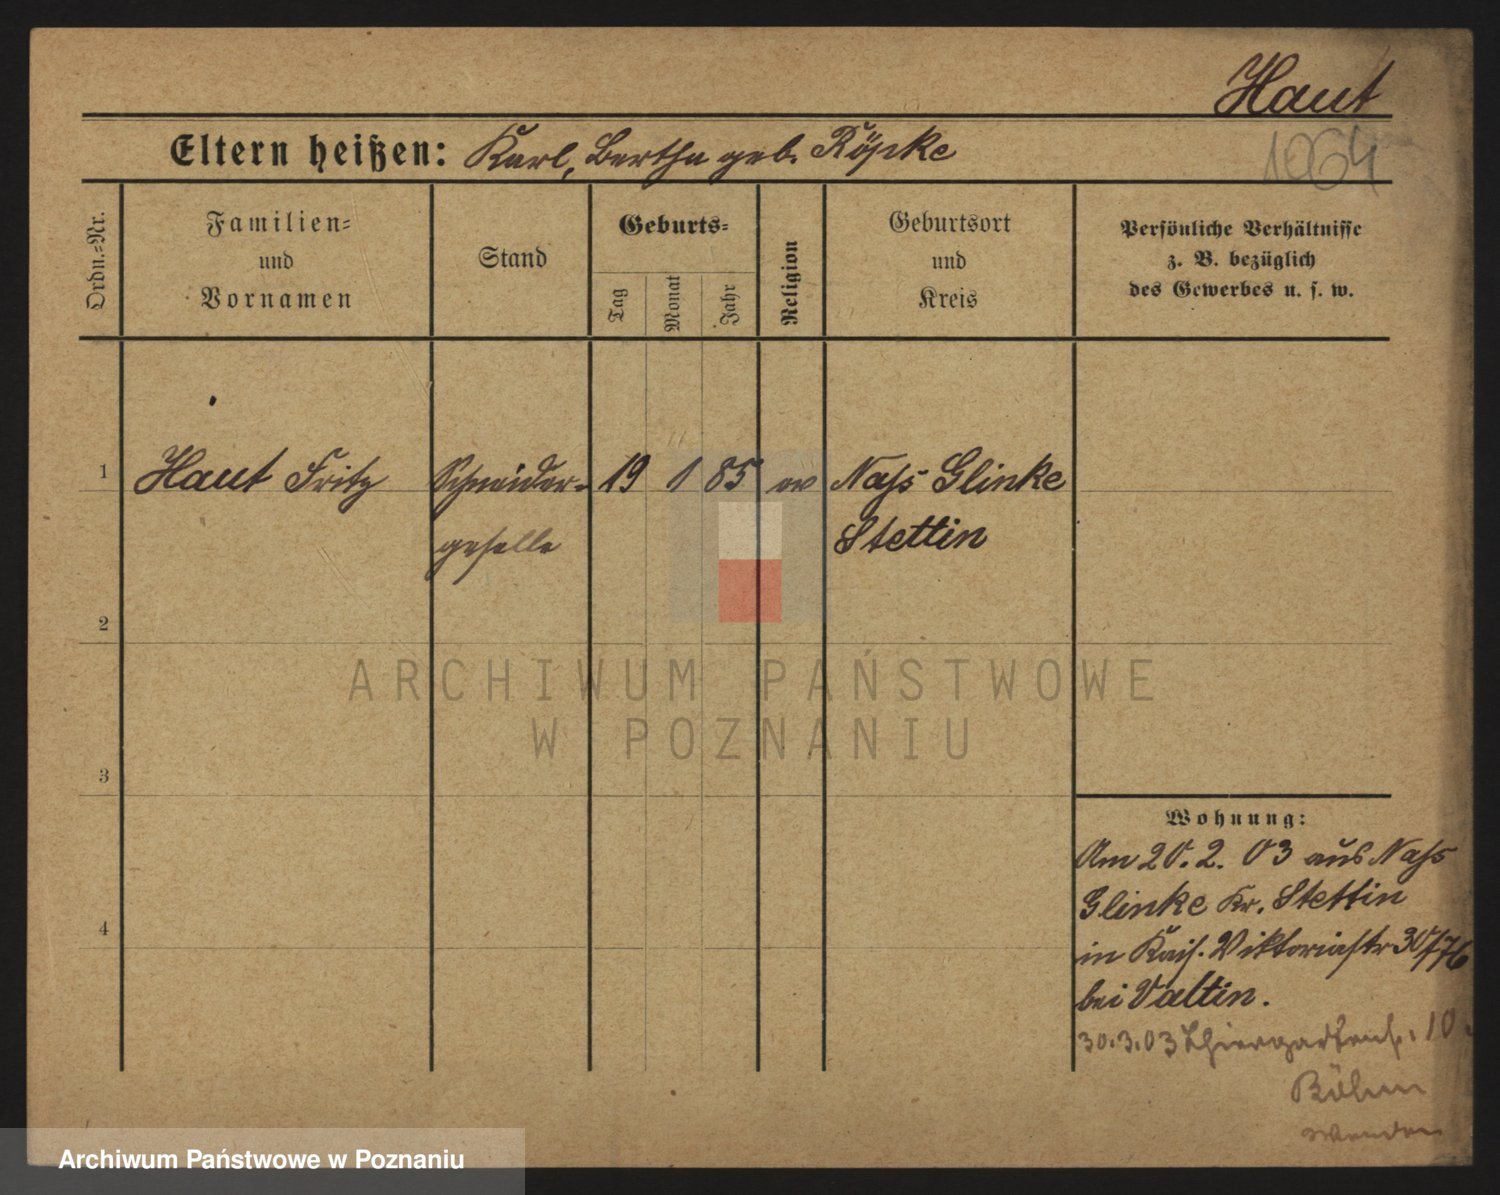 Haut
1064
Eltern heißen: Karl, Bertha geb. Röpke
Ordn.=Nr.
Familien=
und
Vornamen
Stand
Geburts=
Tag
Monat
Jahr
Religion
Geburtsort
und
Kreis
Persönliche Verhältnisse
z. B. bezüglich
des Gewerbes u. s. w.
1 Haut Fritz Schneider= 19 1 85 ev Nass Glinke
geselle Stettin
2
3
4
ARCHIWUM PAŃSTWOWE
W POZNANIU
Wohnung:
Am 20. 2. 03 aus Nass
Glinke Kr. Stettin
in Kais. Viktoriastr 30/76
bei Valtin.
30.3.03 Thiergartenstr. 10
Böhm
wenden
Archiwum Państwowe w Poznaniu